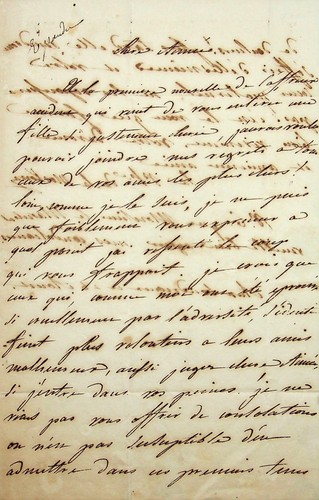 Répondu
cher ami
A la première nouvelle de l'affreux
accident qui vient de vous enlever une
fille si justement cherie, j'aurais voulu
pouvoir joindre mes regrets à
ceux de vos amis les plus chers!
loin, comme je le suis, je ne puis
que faiblement vous exprimer à
quel point j'ai ressenti le coup
qui vous frappait, je crois que
ceux qui, comme moi ont été éprouvés
si cruellement par l'adversité s'identi
fient plus volontiers a leurs amis
malheureux, aussi jugez cher
si j'entre dans vos peines, je ne
viens pas vous offrir de consolations
on n'en pas susceptible d'en
admettre dans ces premiers tems